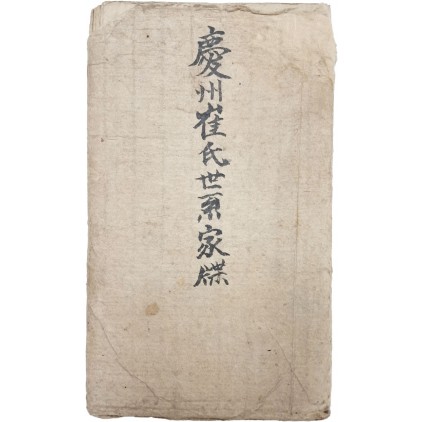 慶州崔氏世系家牒